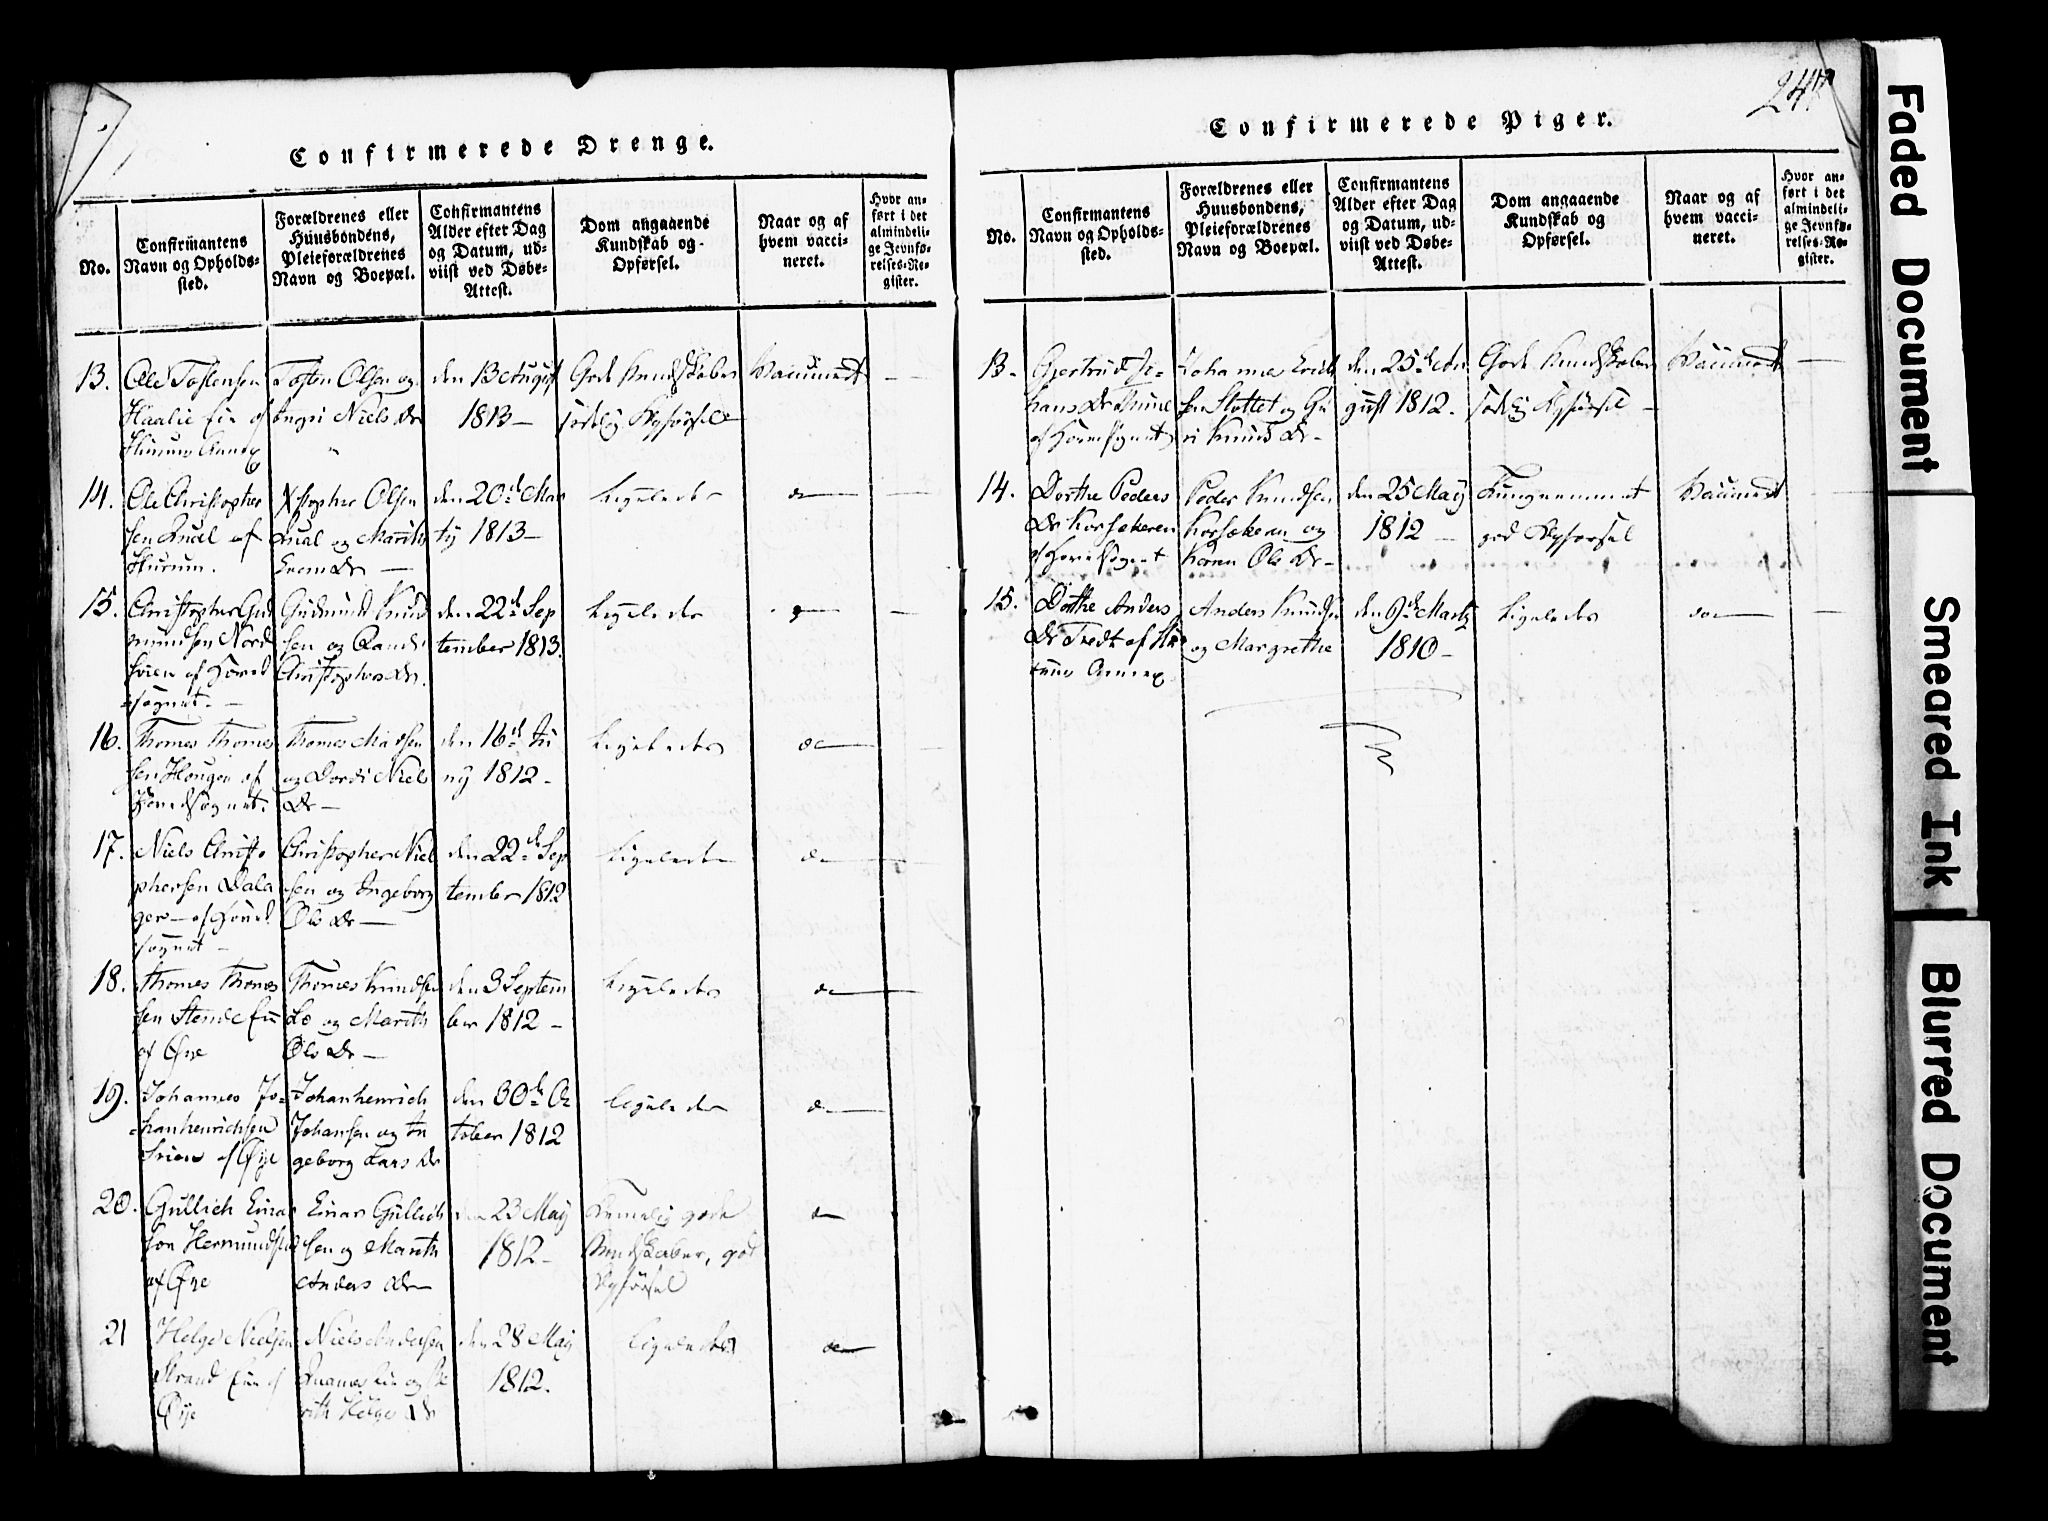 Confirmerede Drenge.
No.
Confirmantens
Navn og Opholds-
sted.
Forældrenes eller
Huusbondens,
Pleieforældrenes
Navn og Boepæl.
Confirmantens
Alder efter Dag
og Datum, ud-
viist ved Døbe-
Attest.
Dom angaaende
Kundskab og
Opførsel.
Naar og af
hvem vacci-
neret.
Hvor an-
ført i det
almindeli-
ge Jevnfø-
relses-Re-
gister.
13.
Ole Tostensen
Tosten Olsen og
Ingri Niels Dr
den 13 August
1813 —
Gode Kundskaber
sædelig Opførsel
Vaccineret
14.
Ole Christopher
sen Lucel af
Hurum.
Xstopher Olsen
og Marith
Dr —
den 20de Mar
tij 1813 —
Ligeledes
do —
15.
Christopher Gud
mundsen Nord
sveen af Hoved
sognet. —
Gudmund Knud
sen og Randi
Christophers Dr.
den 22de Sep
tember 1813.
Ligeledes
16.
Thomes Thomes
sen Hougen af
Hovedsognet.
Thomes Madsen
og Dordi Niels
Dr —
den 16de Ju
nij 1812 —
Ligeledes
do —
17.
Niels Christo
phersen Dala
ger — af Hoved
sognet —
Christopher Niel
sen og Ingeborg
Ols Dr —
den 22de Sep
tember 1812
Ligeledes
do —
18.
Thomes Thomes
sen
af Øye
Thomes Knudsen
Lo og Marith
Ols Dr —
den 3 Septem
ber 1812 —
Ligeledes
do —
19.
Johannes Jo-
hanhenrichsen
af Øye
Johanhenrich
Johansen og In
geborg Lars Dr
den 30de Oc
tober 1812
Ligeledes
do —
20.
Gullich Einar
son Hermundstad
af Øye
Einar Gullich
sen og Marith
Anders Dr —
den 23 Maij
1812 —
Temelig gode
Kundskaber, god
Opførsel
do
21
Helge Nielsen
Strand af
Øye
Niels Andersen
og
rith Helges Dr
den 28 Maij
1812.
Ligeledes
do
Confirmerede Piger.
No.
Confirmantens
Navn og Opholds-
sted.
Forældrenes eller
Huusbondens,
Pleieforældrenes
Navn og Boepæl.
Confirmantens
Alder efter Dag
og Datum, ud-
viist ved Døbe-
Attest.
Dom angaaende
Kundskab og
Opførsel.
Naar og af
hvem vacci-
neret.
Hvor an-
ført i det
almindeli-
ge Jevnfø-
relses-Re-
gister.
13.
Gjertrud Jo-
hans Dr
af Hovedsognet
Johannes Erich
sen Slottet og Gu
ri Knuds Dr —
den 25de Au
gust 1812.
Gode Kundskaber
sædelig Opførsel —
Vaccineret
14.
Dorthe Peders
Dr Korsækeren
af Hovedsognet
Peder Knudsen
Korsækeren og
Karen Ols Dr —
den 25 Maij
1812 —
god Opførsel
Vaccineret
15.
Dorthe Anders
Dr Tredt af Hu
rums Annex
Anders Knudsen
og Margrethe
den 9de Martij
1810 —
Ligeledes
do —
Faded Document
Smeared Ink
Blurred Document